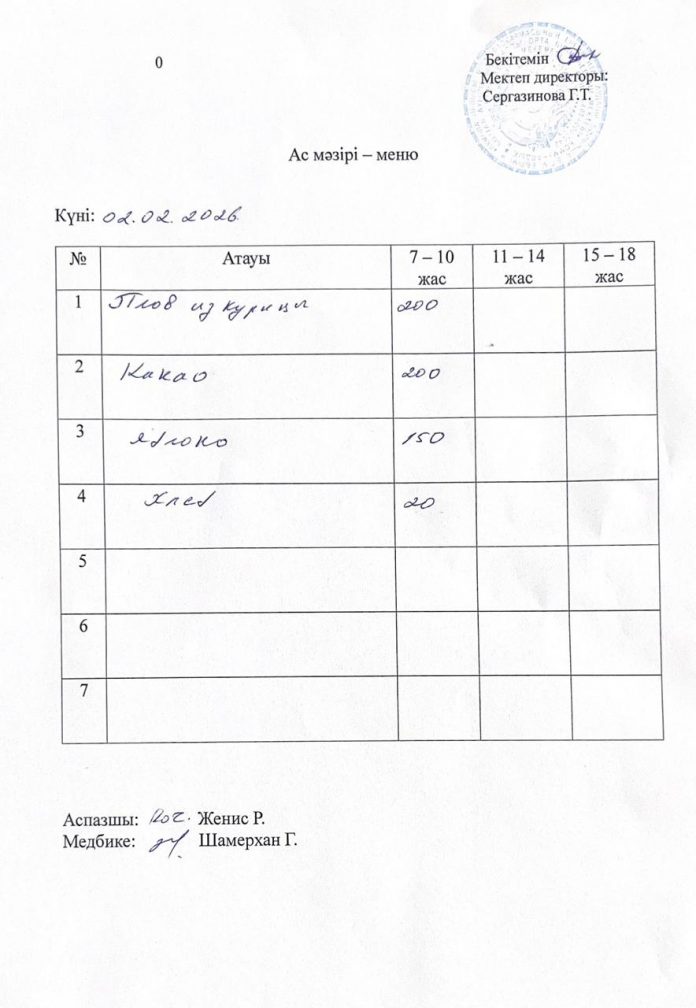 0
Бекітемін
Мектеп директоры:
Сергазинова Г.Т.
Ас мәзірі – меню
Күні: 02.02.2026
№ Атауы 7 – 10 жас 11 – 14 жас 15 – 18 жас
1 Плов из курицы 200
2 Какао 200
3 яблоко 150
4 Хлеб 20
5
6
7
Аспазшы: Женис Р.
Медбике: Шамерхан Г.